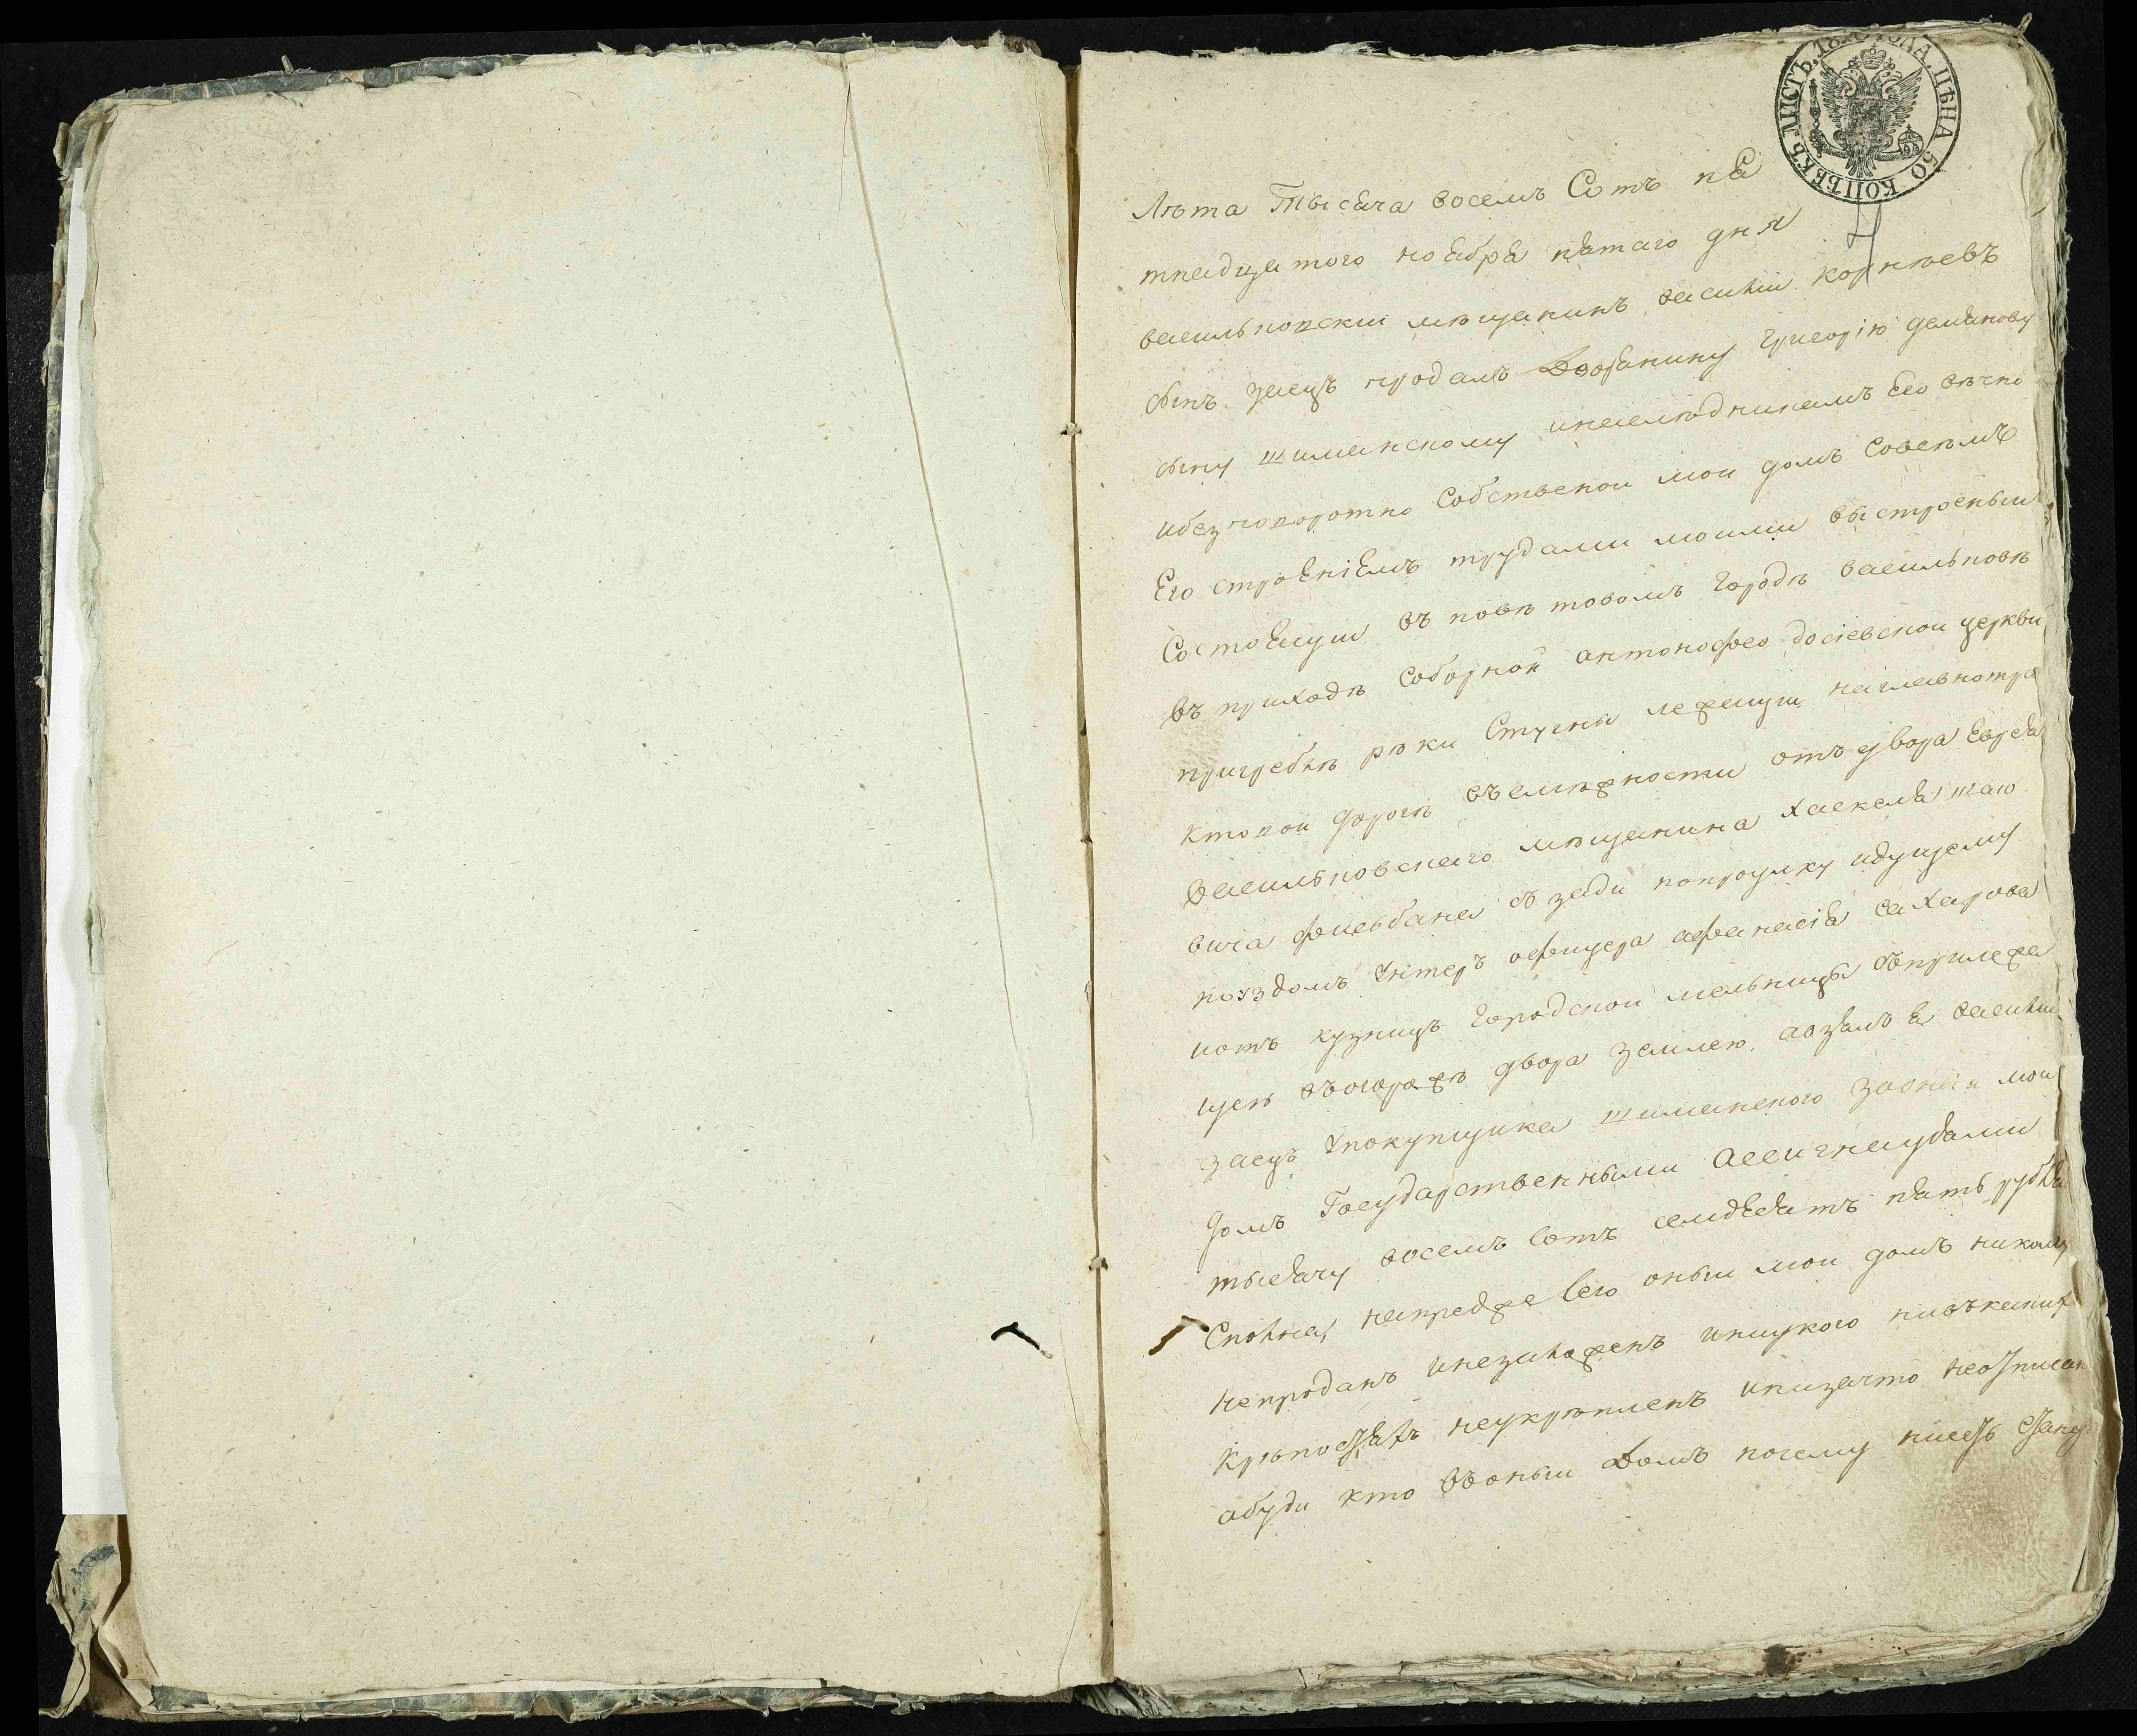 ЛИСТЪ. 18 ГОДА. ЦѢНА 50 КОПѢЕКЪ
Лѣта Тысяча восемъ Сотъ пя
тнадцатого ноября пятаго дня
васильковски мѣщанинъ васили корнѣевъ
сынъ заецъ продалъ Дворанину Григорію демянову
сыну шиманскому инаслѣдникамъ Его вѣчно
ибезповоротно Собственои мои домъ Совсѣмъ
Его строЕніЕмъ трудами моими выстроены
Состоящи въ повѣтовомъ Городѣ васильковѣ
въ приходѣ Соборной антонофео досіевскои церкви
пригребли рѣки Стугны лежащи наглавнотра
ктовои дорогѣ въсмѣжности отъ двора Еврея
васильковскаго мѣщанина хаскеля шаю
вича фиельбана съ зади попроулку идущему
поуздомъ унтеръ офицера афанасія сахарова
иотъ кузницъ Городскои мельницы съприлежа
щею въограде двора землею, авзялъ я васили
заецъ упокупщика шиманского заоной мои
домъ Государственными ассигнацыями
тысячу восемъ сотъ семдесятъ пять рублей
Сполна, напредже сего оныи мои домъ никому
непроданъ инезаложенъ иницкого нивъкаких
Крѣпостяхъ неукрѣпленъ инизачто неотписан
абуди кто въоныи домъ почему нисть